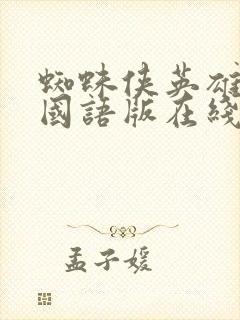 蜘蛛俠英雄
國語版在綫
孟子媛